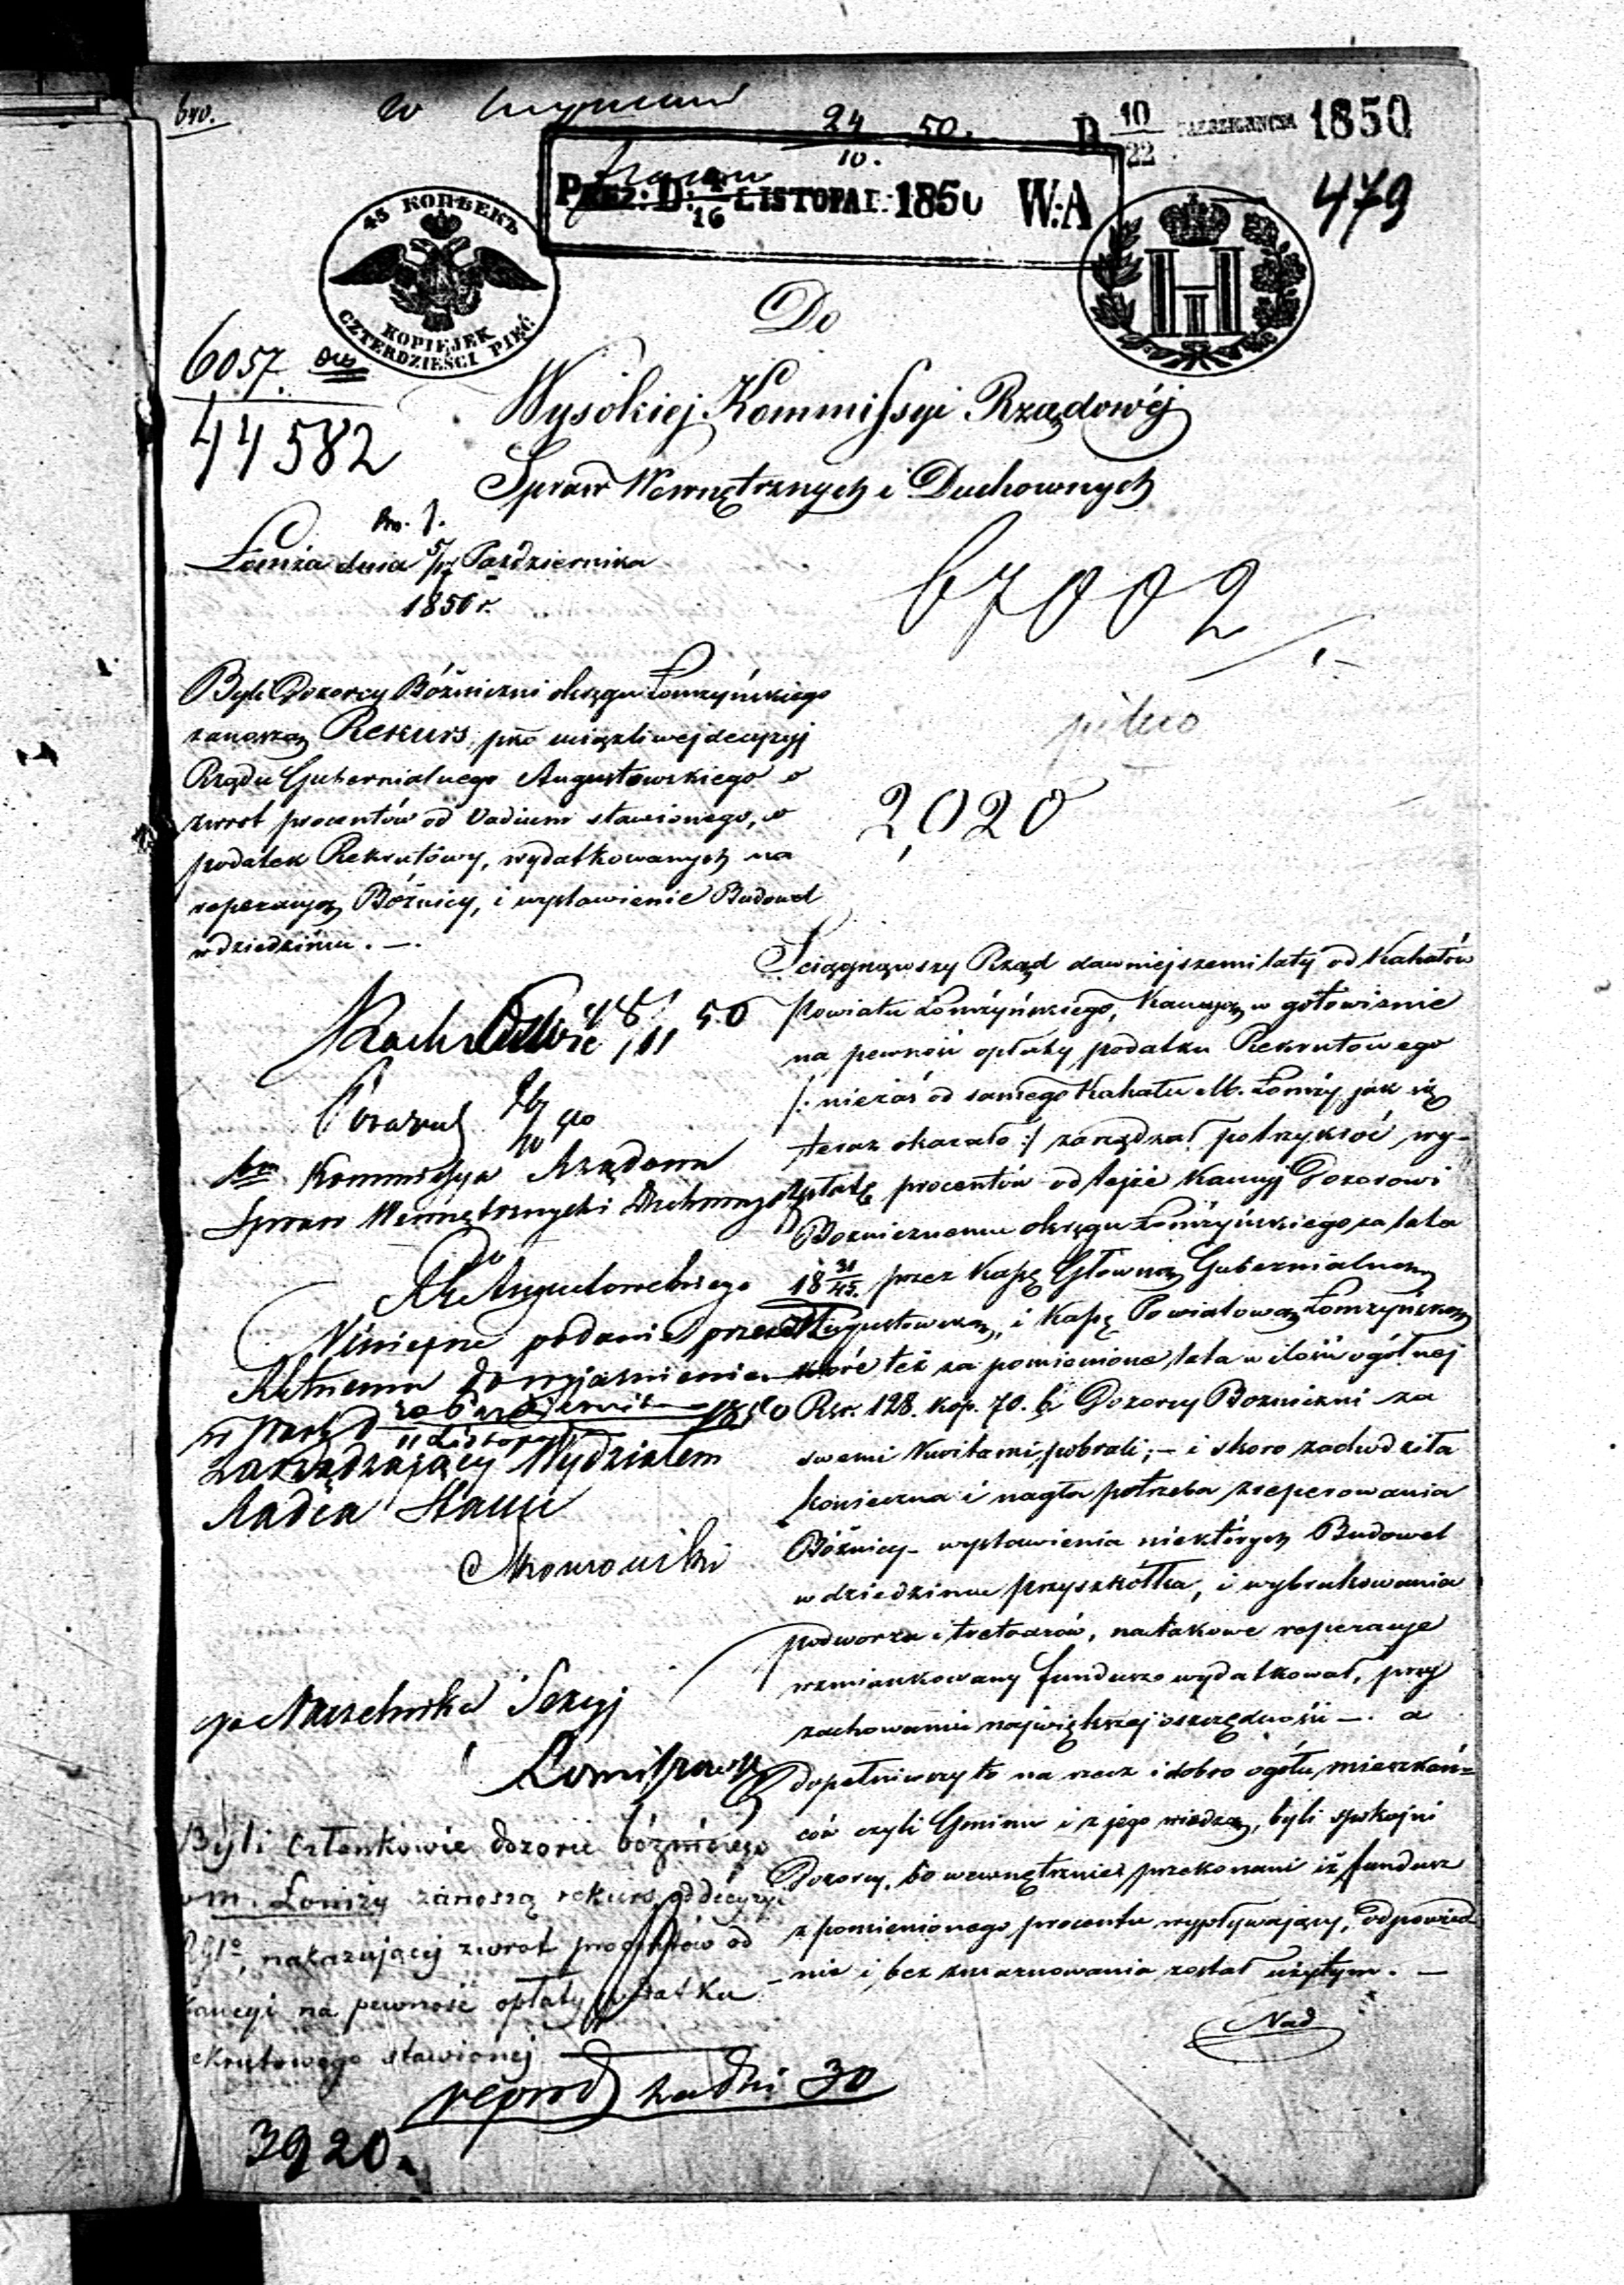 w
24 50.
10.
D 10/22 1850
479
PREZ: D: 4/16 LISTOPAD: 1850 W:A
45 КОПѢЕКЪ
KOPIEJEK
CZTERDZIEŚCI PIĘĆ
H
III
6057.
44582
Do
Wysokiej Kommissyi Rządowéj
Spraw Wewnętrznych i Duchownych
Łomża dnia 5/17 Października
1850 r.
67002
pilno
2,020
Byli Dozorcy Bóżniczni okręgu Łomżyńskiego
zanoszą Rekurs, pko uciążliwej decyzyj
Rządu Gubernialnego Augustowskiego o
zwrot procentów od Vadium stawionego, o
podatek Rekrutowy, wydatkowanych na
reperacyą Bóżnicy, i wystawienie Budowel
w dziedzińcu. —.
Sciągnąwszy Rząd dawniejszemi laty od Kahałów
Powiatu Łomżyńskiego, Kaucyą w gotowiznie
na pewność opłaty podatku Rekrutowego
/: nie zaś od samego Kahału M. Łomży jak się
teraz okazało :/ zarządzał potrzykroć wy-
płatę procentów od tejże Kaucyj Dozorowi
Boznicznemu okręgu Łomżyńskiego za lata
18 31/45. przez Kassę Główną Gubernialną
Augustowską, i Kassę Powiatową Łomżyńską
które też za pomienione lata w ilości ogólnej
Rsr. 128. kop. 70. ½ Dozorcy Bozniczni za
swemi Kwitami pobrali; — i skoro zachodziła
konieczna i nagła potrzeba zreperowania
Bóżnicy — wystawienia niektórych Budowel
w dziedzińcu przyszkółka, i wybrukowania
podworza i tretoarów, na takowe reperacye
wzmiankowany fundusz wydatkował, przy
zachowaniu największej oszczędności —. a
dopełniwszy to na rzecz i dobro ogółu mieszkań=
ców czyli Gminu i z jego wiedzą, byli spokojni
Dozorcy, bo wewnętrznie przekonani iż fundusz
z pomienionego procentu wypływający, odpowied-
nie i bez zmarnowania został użytym. —
Nad
18/11 50
Kommissya Rządowa
Spraw Wewnętrznych i Duchownych
Do
R. G. Augustowskiego
Niniejsze podanie przesyła
do wyjaśnienia
w Warsz. D 30 Października 1850
11 Listopada
Zarządzający Wydziałem
Radca Stanu
za Naczelnika Sekcyj
Byli członkowie dozoru bóżniczego
m. Łomży zanoszą rekurs od decyzyi
nakazującej zwrot procentów od
kaucyi na pewność opłaty podatku
rekrutowego stawionej
reprod za dni 30
3920.